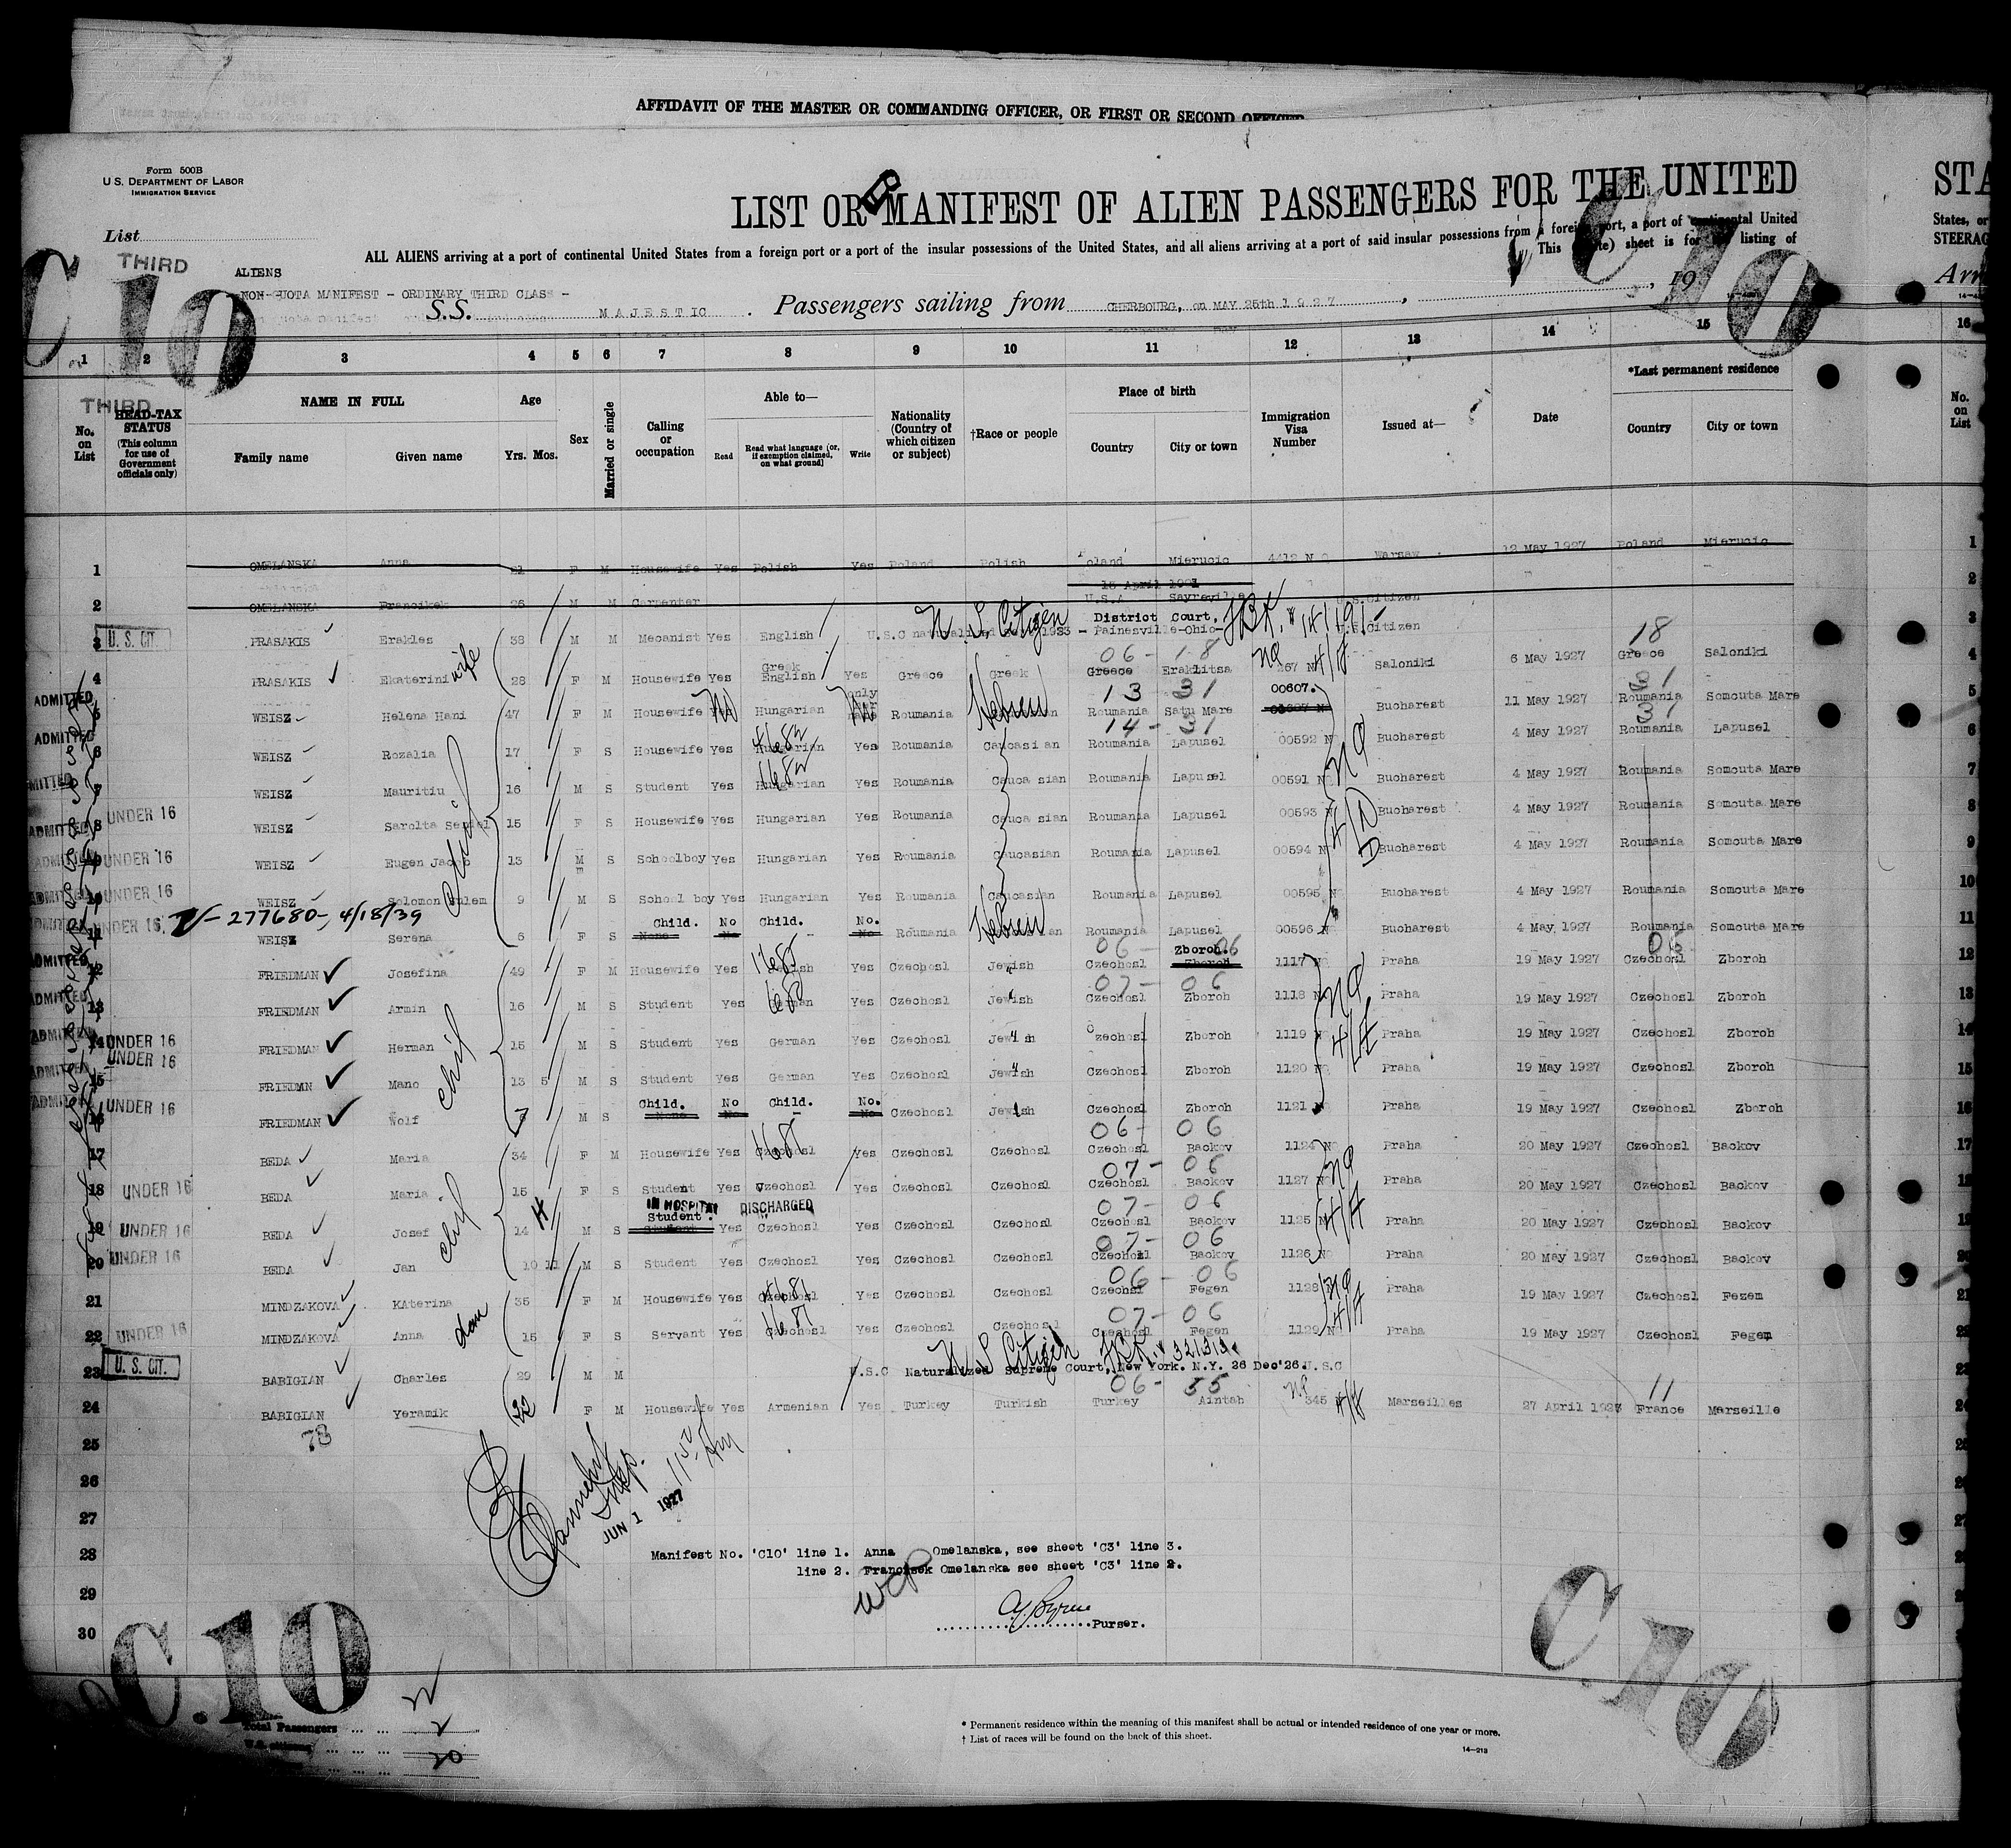 AFFIDAVIT OF THE MASTER OR COMMANDING OFFICER, OR FIRST OR SECOND OFFICER
Form 500B
U. S. DEPARTMENT OF LABOR
IMMIGRATION SERVICE
LIST OR MANIFEST OF ALIEN PASSENGERS FOR THE UNITED STA
List
ALL ALIENS arriving at a port of continental United States from a foreign port or a port of the insular possessions of the United States, and all aliens arriving at a port of said insular possessions from a foreign port, a port of continental United States, or
This sheet is for listing of STEERAG
C 10
THIRD
C 10
ALIENS
NON-QUOTA MANIFEST - ORDINARY THIRD CLASS -
S.S. MAJESTIC. Passengers sailing from CHERBOURG, on MAY 25th 1927, 19 Arr
1 2 3 4 5 6 7 8 9 10 11 12 13 14 15 16
THIRD
No. on List
HEAD-TAX STATUS (This column for use of Government officials only)
NAME IN FULL
Family name Given name
Age
Yrs. Mos.
Sex
Married or single
Calling or occupation
Able to—
Read Read what language (or, if exemption claimed, on what ground) Write
Nationality (Country of which citizen or subject)
†Race or people
Place of birth
Country City or town
Immigration Visa Number
Issued at—
Date
*Last permanent residence
Country City or town
No. on List
1 OMELANSKA Anna 21 F M Housewife Yes Polish Yes Poland Polish Poland Mierucic 4412 N Q Warsaw 12 May 1927 Poland Mierucic 1
15 April 1921
2 OMELANSKA Francikek 26 M M Carpenter U.S.A Sayreville U.S.Citizen 2
U S Citizen District Court.
3 U. S. CIT. PRASAKIS Erakles 38 M M Mecanist Yes English U.S.C naturalized 1923 - Painesville-Ohio- U.S.Citizen 3
06 - 18 18
4 PRASAKIS Ekaterini wife 28 F M Housewife Yes Greek English Yes Greece Greek Greece Eraklitsa 267 N Saloniki 6 May 1927 Greece Saloniki 4
13 - 31 00607. 31
5 ADMITTED WEISZ Helena Hani 47 F M Housewife Yes Hungarian only Roumania Hebrew Roumania Satu Mare Bucharest 11 May 1927 Roumania Somcuta Mare 5
14 - 31 31
6 ADMITTED WEISZ Rozalia 17 F S Housewife Yes Hungarian Yes Roumania Caucasian Roumania Lapusel 00592 NQ Bucharest 4 May 1927 Roumania Lapusel 6
7 ADMITTED WEISZ Mauritiu 16 M S Student Yes Hungarian Yes Roumania Caucasian Roumania Lapusel 00591 NQ Bucharest 4 May 1927 Roumania Somcuta Mare 7
8 ADMITTED UNDER 16 WEISZ Sarolta 15 F S Housewife Yes Hungarian Yes Roumania Caucasian Roumania Lapusel 00593 N Bucharest 4 May 1927 Roumania Somcuta Mare 8
9 ADMITTED UNDER 16 WEISZ Eugen Jacob 13 M S Schoolboy Yes Hungarian Yes Roumania Caucasian Roumania Lapusel 00594 N Bucharest 4 May 1927 Roumania Somcuta Mare 9
10 ADMITTED UNDER 16 WEISZ Solomon Sulem 9 M S School boy Yes Hungarian Yes Roumania Caucasian Roumania Lapusel 00595 N Bucharest 4 May 1927 Roumania Somcuta Mare 10
277680-, 4/18/39
Child. No Child. No.
11 UNDER 16 WEISZ Serena 5 F S None No - No Roumania Hebrew Roumania Lapusel 00596 N Bucharest 4 May 1927 Roumania Somcuta Mare 11
06 - 06 Zboroh. 06
12 ADMITTED FRIEDMAN Josefina 49 F M Housewife Yes Yes Czechosl Jewish Czechosl Zboroh 1117 NQ Praha 19 May 1927 Czechosl Zboroh 12
07 - 06
13 ADMITTED FRIEDMAN Armin 16 M S Student Yes German Yes Czechosl Jewish Czechosl Zboroh 1118 NQ Praha 19 May 1927 Czechosl Zboroh 13
14 ADMITTED UNDER 16 FRIEDMAN Herman 15 M S Student Yes German Yes Czechosl Jewish Czechosl Zboroh 1119 Praha 19 May 1927 Czechosl Zboroh 14
15 ADMITTED UNDER 16 FRIEDMN Mano 13 5 M S Student Yes German Yes Czechosl Jewish Czechosl Zboroh 1120 NQ Praha 19 May 1927 Czechosl Zboroh 15
Child. No Child. No.
16 ADMITTED UNDER 16 FRIEDMAN Wolf 7 M S None No - No Czechosl Jewish Czechosl Zboroh 1121 N Praha 19 May 1927 Czechosl Zboroh 16
06 - 06
17 BEDA Maria 34 F M Housewife Yes Czechosl Yes Czechosl Czechosl Czechosl Backov 1124 NQ Praha 20 May 1927 Czechosl Backov 17
07 - 06
18 UNDER 16 BEDA Maria 15 F S Student Yes Czechosl Yes Czechosl Czechosl Czechosl Backov 1127 NQ Praha 20 May 1927 Czechosl Backov 18
IN HOSPITAL DISCHARGED 07 - 06
Student.
19 UNDER 16 BEDA Josef 14 M S Student Yes Czechosl Yes Czechosl Czechosl Czechosl Backov 1125 N Praha 20 May 1927 Czechosl Backov 19
07 - 06
20 UNDER 16 BEDA Jan 10 11 M S Student Yes Czechosl Yes Czechosl Czechosl Czechosl Backov 1126 NQ Praha 20 May 1927 Czechosl Backov 20
06 - 06
21 MINDZAKOVA KAterina 35 F M Housewife Yes Czechosl Yes Czechosl Czechosl Czechosl Fegen 1128 Praha 19 May 1927 Czechosl Fezem 21
07 - 06
22 UNDER 16 MINDZAKOVA Anna 15 F S Servant Yes Czechosl Yes Czechosl Czechosl Czechosl Fegen 1129 N Praha 19 May 1927 Czechosl Fegem 22
U S Citizen
23 U. S. CIT. BABIGIAN Charles 29 M M U.S.C Naturalized Supreme Court, New York. N.Y. 26 Dec'26. U.S.C 23
06 - 55 11
24 BABIGIAN Yeramik 22 F M Housewife Yes Armenian Yes Turkey Turkish Turkey Aintab 345 Marseilles 27 April 1927 France Marseille 24
25 78
26
27 Insp. JUN 1 1927
28 Manifest No. 'C10' line 1. Anna Omelanska, see sheet 'C3' line 3.
line 2. Francisek Omelanska see sheet 'C3' line 2.
29
30 Purser.
C. 10
C. 10
Total Passengers ... ... 22
U.S. citizens ... ... ... 2
20
* Permanent residence within the meaning of this manifest shall be actual or intended residence of one year or more.
† List of races will be found on the back of this sheet.
14—213